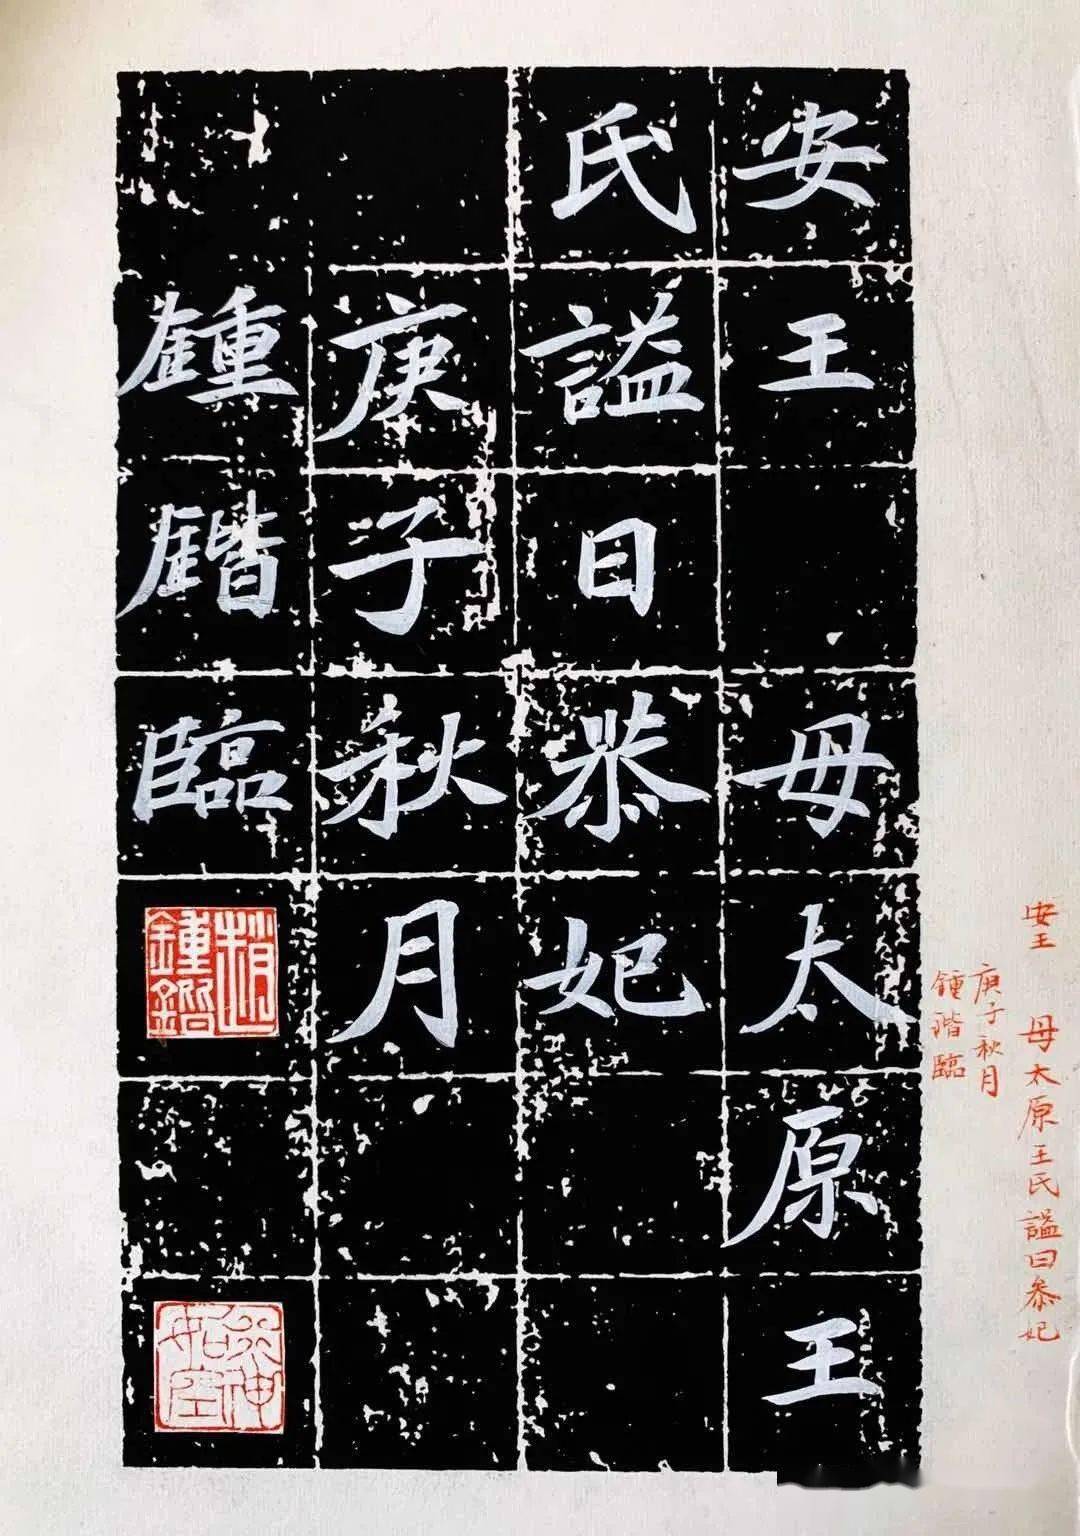 安王 母太原王
氏謚曰恭妃
庚子秋月
鍾鍇臨
趙鍾鍇
如是
安王 母太原王氏謚曰恭妃
庚子秋月
鍾鍇臨